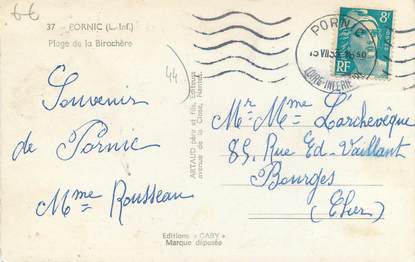 66
37 - PORNIC (L.-Inf.)
Plage de la Birochère
44
Souvenir
de Pornic
Mme Rousseau
ARTAUD père et fils, Editeurs
avenue de la Close, Nantes
Editions "GABY"
Marque déposée
PORNIC
LOIRE-INFERIEURE
8F
RF
Mr Mme L'archevèque
85, Rue Ed-Vaillant
Bourges
(Cher)